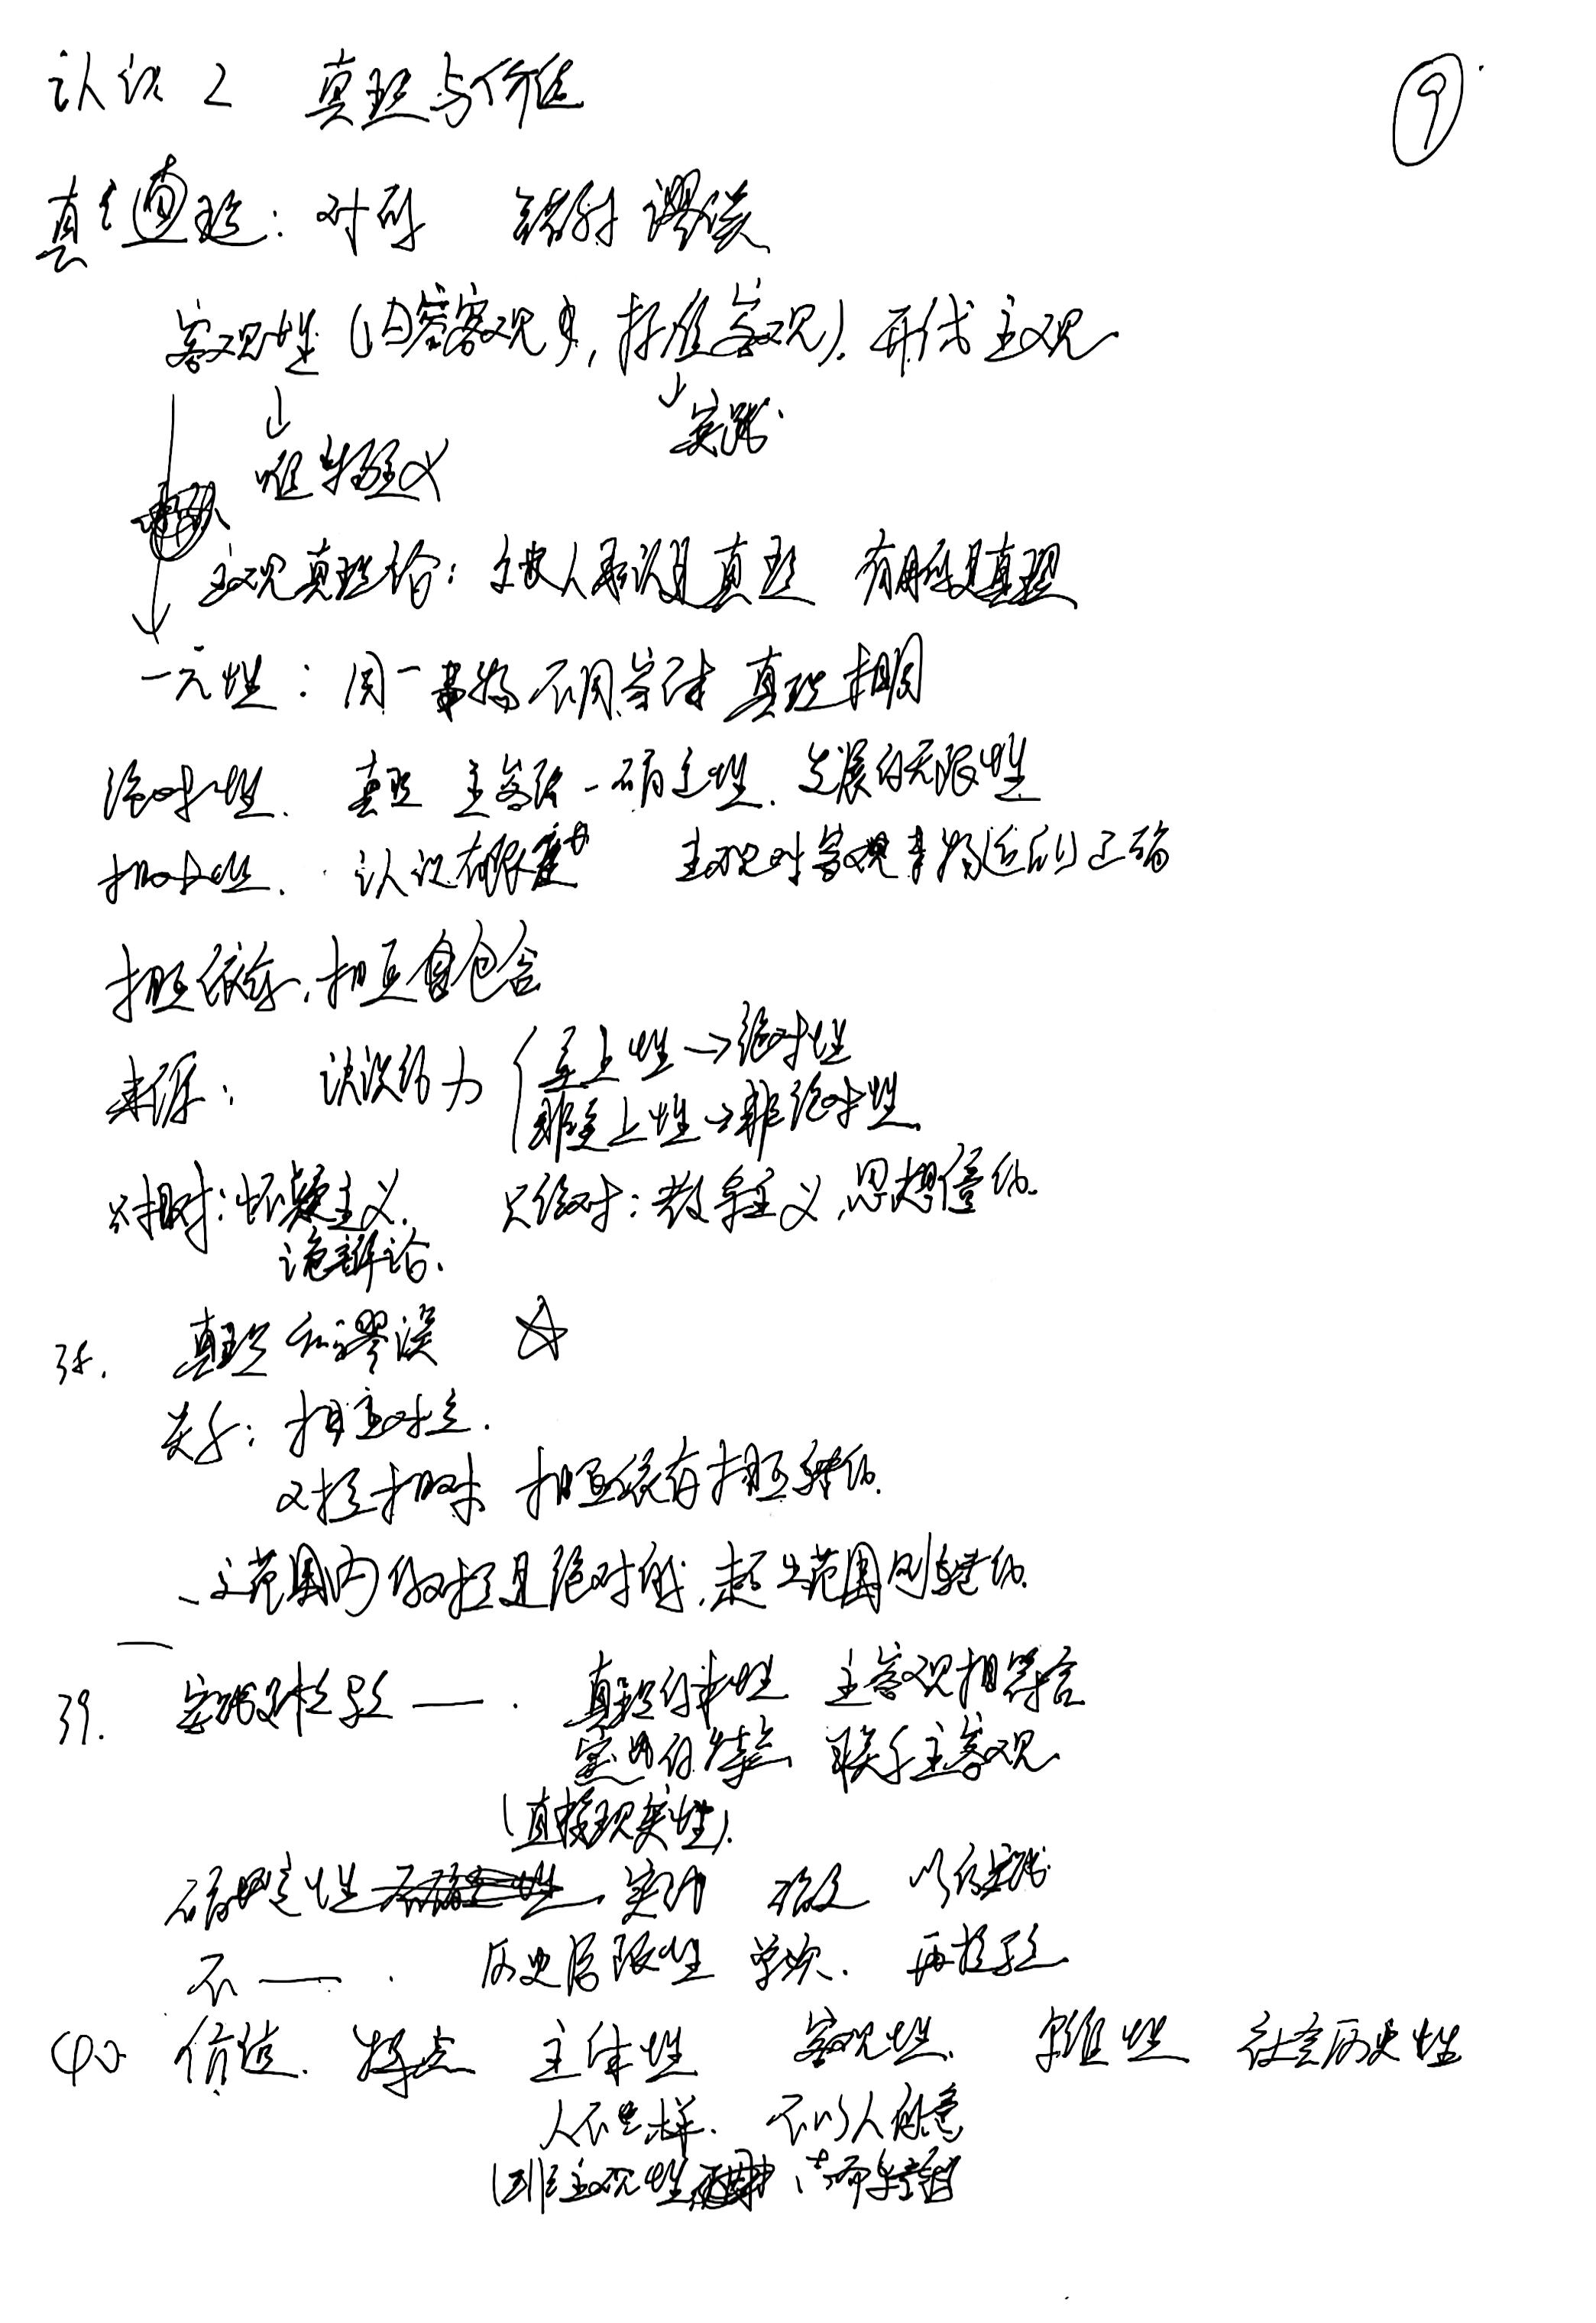 认识 2 真理与价值
⑨
真理: 对的 错的 谬误
客观性 (内容客观, 标准客观). 形式主观
↓ ↓
实践
唯物主义
主观真理论: 多数人承认是真理 有用的是真理
一元性: 同一事物 不同学体 真理相同
绝对性. 真理 主客统一确定性. 发展的无限性
相对性. 认识有限度 主观对客观事物近似正确
相互依存. 相互包含
来源: 认识能力 { 至上性→绝对性
非至上性→非绝对性.
只相对: 怀疑主义. 只绝对: 教条主义, 思想僵化.
诡辩论.
真理和谬误 ☆
关系: 相互对立.
对立相对 相互依存相互转化.
一定范围内的对立是绝对的, 超出范围则转化.
39. 实践是检验 —— . 真理的本性 主客观相符合
实践的特点 联系主客观.
(直接现实性).
确定性 实践 以后实践
不 —— . 历史局限性 单次. 再检验
40 价值. 特点 主体性 客观性. 多维性 社会历史性
人不一样. 不以人的意
(非主观性 志而转移